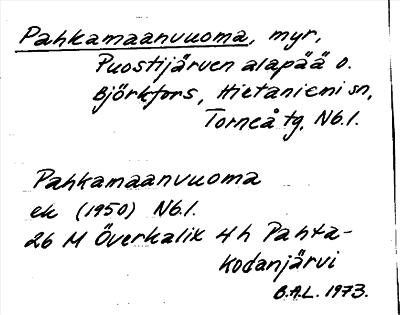 Pahkamaanvuoma, myr,
Puostijärven alapää o.
Björkfors, Hietaniemi sn,
Torneå tg, Nb.l.
Pahkamaanvuoma
ek (1950) Nb.l.
26 M Överkalix 4h Pahta-
kodanjärvi
B.A.L. 1973.